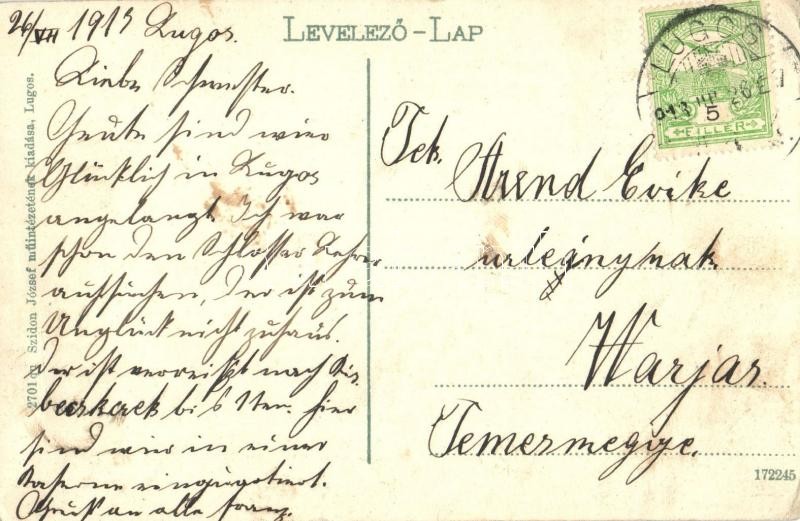 26/VII 1913 Lugos.
Liebe Schwester.
Heute sind wir
Glücklich in Lugos
angelangt. Ich war
schon den Schlosser Lehrer
aufsuchen, der ist zum
Unglück nicht zuhaus.
Der ist verreißt nach
bis 6 Uhr. hier
sind wir in einer
Kaserne einquatiert.
Gruß an alle Franz.
2701 Szidon József műintézetének kiadása, Lugos.
LEVELEZŐ-LAP
LUGOS
913
5
FILLÉR
Tek.
Arend Evike
urleánynak
Warjas.
Temesmegye.
172245